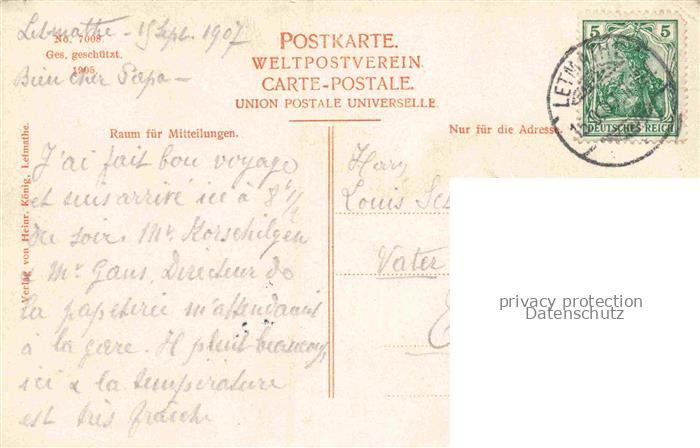 Letmathe - 15 Sept. 1907
No. 7008.
Ges. geschützt.
1905.
Bien cher Papa -
POSTKARTE.
WELTPOSTVEREIN.
CARTE-POSTALE.
UNION POSTALE UNIVERSELLE.
5 5
DEUTSCHES REICH
LETMATHE
Raum für Mitteilungen.
Nur für die Adresse.
J'ai fait bon voyage
et suis arrivé ici à 8 h 1/2
du soir. Mr. Korschilgen
& Mr. Gans, Directeur de
la papeterie m'attendaient
à la gare. Il pleut beaucoup
ici & la température
est très fraîche
Verlag von Heinr. König, Letmathe.
Herrn
Louis
Vater
privacy protection
Datenschutz